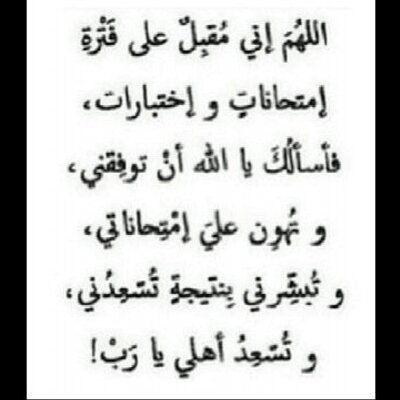 اللهُمَ إني مُقبِلٌ على فَتْرةِ
إمتحاناتٍ و إختبارات،
فأسألُكَ يا الله أنْ توفِقني،
و تُهون عليَ إمْتِحاناتي،
و تُبشِّرني بِنتيجةٍ تُسّعِدُني،
و تُسّعِدُ أهلي يا رَبْ!